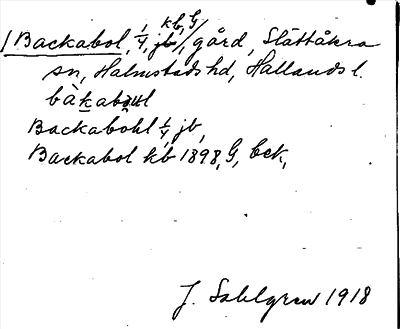 Backabol, 1/4, jb, kb, G, gård, Slättåkra
sn, Halmstads hd, Hallands l.
Backabohl 1/4 jb,
Backabol kb 1898, G, bck,
J. Sahlgren 1918